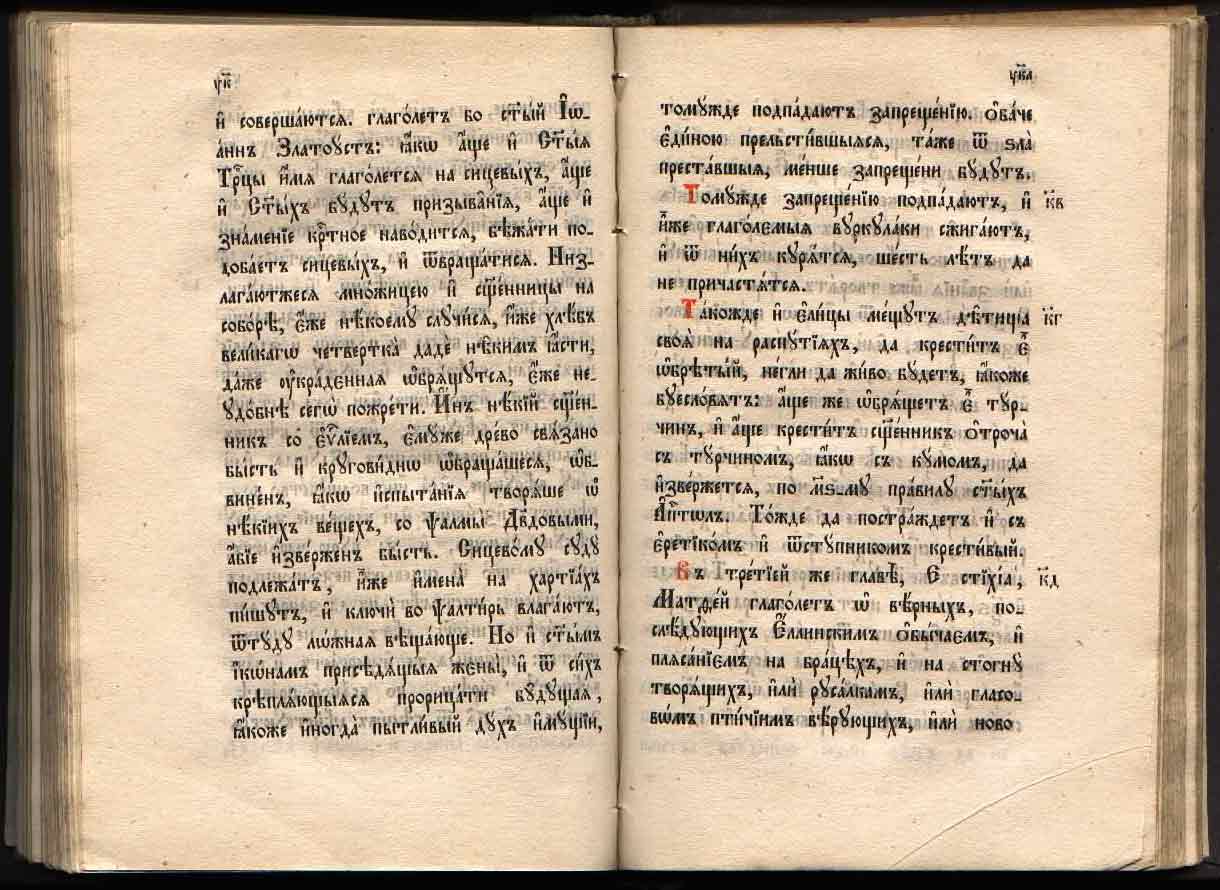 ук҃
и҆ соверша́ются. глаго́летъ бо ст҃ый І҆ѡ-
а́ннъ Златоустъ: ꙗ҆́кѡ а҆́ще и҆ Ст҃ы́я
Тр҃цы и҆́мя глаго́лется на сицевы́хъ, а҆́ще
и҆ Ст҃ы́хъ бу́дутъ призыва́нїя, а҆́ще и҆
зна́менїе кр҃тное наво́дится, бѣжа́ти по-
доба́етъ сицевы́хъ, и҆ ѿвраща́тися. Низ-
лага́ютжеся мно́жицею и҆ сщ҃е́нницы на
собо́рѣ, є҆́же нѣ́коему случи́ся, и҆́же хлѣ́бъ
вели́кагѡ четвертка̀ дадѐ нѣ́кимъ ꙗ҆́сти,
да́же ѹ҆кра́денная ѡ҆бря́щутся, є҆́же не-
удо́бнѣ сегѡ̀ пожре́ти. И҆́нъ нѣ́кїй сщ҃е́н-
никъ со є҆ѵ҃лїемъ, є҆му́же дре́во свя́зано
бы́сть и҆ кругови́днѡ ѡ҆браща́шеся, ѡ҆б-
вине́нъ, ꙗ҆́кѡ и҆спыта́нїя творя́ше ѡ҆
нѣ́кїихъ ве́щехъ, со ѱалмы̀ Дв҃довыми,
а҆́бїе и҆зве́рженъ бы́сть. Сицево́му суду̀
подлежа́тъ, и҆́же и҆мена̀ на ха́ртїахъ
пи́шутъ, и҆ ключѝ во ѱалти́рь влага́ютъ,
ѿту́ду лѡ́жная вѣща́юще. Но и҆ ст҃ы́мъ
і҆кѡ́намъ присѣдя́щыя жены̀, и҆ ѿ си́хъ
крѣпля́ющыяся прорица́ти бу́дущая,
ꙗ҆́коже и҆ногда̀ пытли́вый ду́хъ и҆му́щїи,
ук҃а
тому́жде подпа́даютъ запреще́нїю. ѻ҆ба́че
є҆ди́ною прельсти́вшыяся, та́же ѿ ѕла̀
преста́вшыя, ме́нше запреще́ни бу́дутъ.
Тому́жде запреще́нїю подпа́даютъ, и҆ к҃в
и҆́же глаго́лемыя вурку́лаки сжига́ютъ,
и҆ ѿ ни́хъ куря́тся, ше́сть лѣ́тъ да
не причастя́тся.
Та́кожде и҆ є҆ли́цы ме́щутъ дѣ́тища к҃г
своя̀ на распу́тїяхъ, да крести́тъ є҆̀
ѡ҆брѣты́й, не́гли да жи́во бу́детъ, ꙗ҆́коже
буесло́вятъ: а҆́ще же ѡ҆бря́щетъ є҆̀ ту́р-
чинъ, и҆ а҆́ще крести́тъ сщ҃е́нникъ ѻ҆троча̀
съ ту́рчиномъ, ꙗ҆́кѡ съ ку́момъ, да
и҆зве́ржется, по м҃ѕ-му пра́вилу ст҃ы́хъ
А҆п҃толъ. То́жде да постра́ждетъ и҆ съ
є҆рети́комъ и҆ ѿсту́пникомъ крести́вый.
Въ тре́тїей же главѣ̀, Є стїхі́а, к҃д
Матѳе́й глаго́летъ ѡ҆ вѣ́рныхъ, по-
слѣ́дующихъ Є҆́ллинскимъ ѻ҆бы́чаемъ, и҆
пляса́нїемъ на бра́цѣхъ, и҆ на сто́гну
творя́щихъ, и҆лѝ руса́лкамъ, и҆лѝ гласо-
вѡ́мъ пти́чїимъ вѣ́рующихъ, и҆лѝ ново-